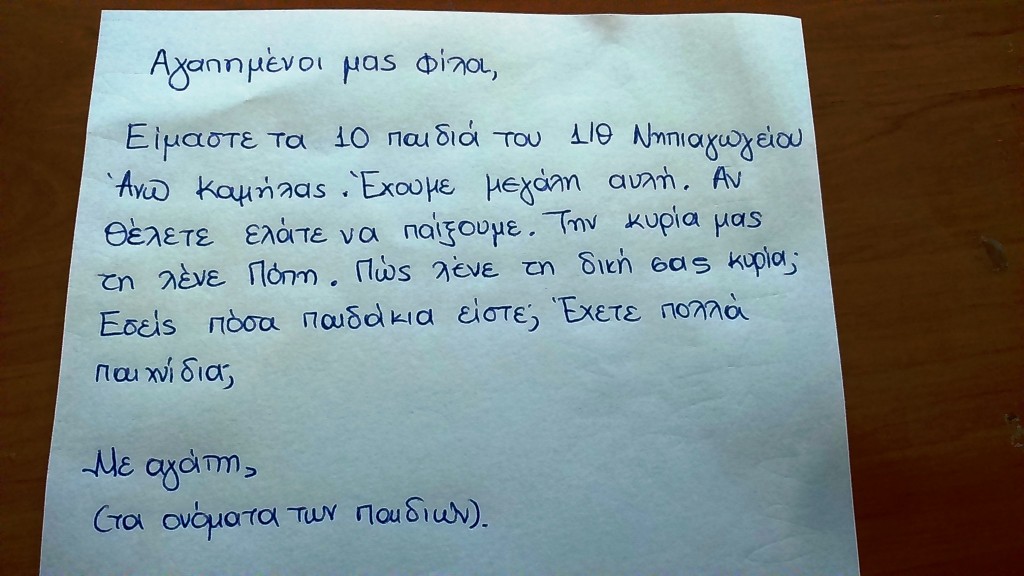 Αγαπημένοι μας φίλοι,
Είμαστε τα 10 παιδιά του 1/Θ Νηπιαγωγείου
Άνω Καμήλας. Έχουμε μεγάλη αυλή. Αν
θέλετε ελάτε να παίξουμε. Την κυρία μας
τη λένε Πόπη. Πώς λένε τη δική σας κυρία;
Εσείς πόσα παιδάκια είστε; Έχετε πολλά
παιχνίδια;
Με αγάπη,
(τα ονόματα των παιδιών).